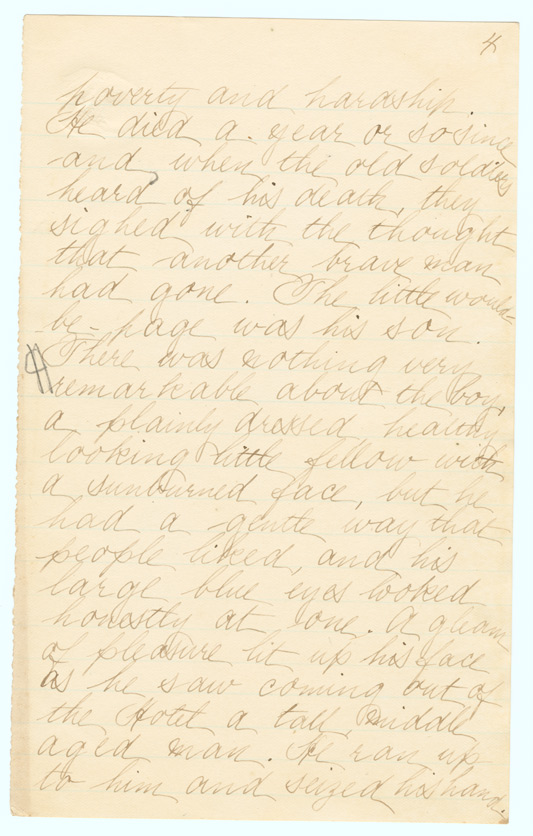 4
poverty and hardship.
He died a year or so since
and, when the old soldiers
heard of his death, they
sighed with the thought
that another brave man
had gone. The little would-
be-page was his son.
¶ There was nothing very
remarkable about the boy,
a plainly dressed, healthy
looking little fellow with
a sunburned face, but he
had a gentle way that
people liked, and his
large blue eyes looked
honestly at one. A gleam
of pleasure lit up his face
as he saw coming out of
the Hotel a tall, middle
aged man. He ran up
to him and seized his hand.